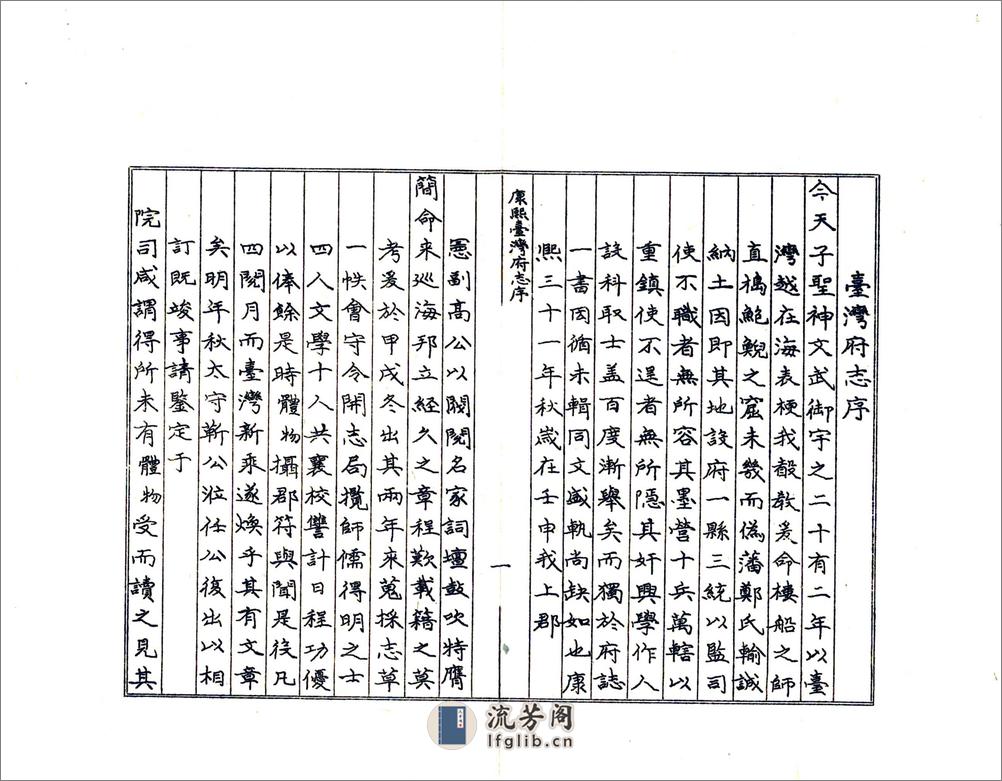 臺灣府志序
今天子聖神文武御宇之二十有二年以臺
灣越在海表梗我聲教爰命樓船之師
直搗鮑鯢之窟未幾而偽藩鄭氏輸誠
納土因即其地設府一縣三統以監司
使不職者無所容其墨營十兵萬轄以
重鎮使不逞者無所隱其奸興學作人
設科取士盖百度漸舉矣而獨於府誌
一書因循未輯同文盛軌尚缺如也康
熙三十一年秋歲在壬申我上郡
康熙臺灣府志序
一
憲副高公以閥閱名家詞壇鼓吹特膺
簡命來巡海邦立經久之章程歎載籍之莫
考爰於甲戌冬出其兩年來蒐採志草
一帙會守令開志局攬師儒得明之士
四人文學十人共襄校讐計日程功優
以俸餘是時體物攝郡符與聞是役凡
四閱月而臺灣新乘遂煥乎其有文章
矣明年秋太守靳公涖任公復出以相
訂既竣事請鑒定于
院司咸謂得所未有體物受而讀之見其
流芳阁
lfglib.cn